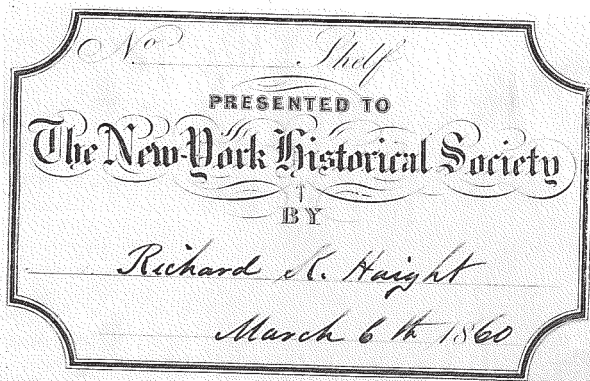 No Shelf
PRESENTED TO
The New-York Historical Society
BY
Richard K. Haight
March 6th 1860